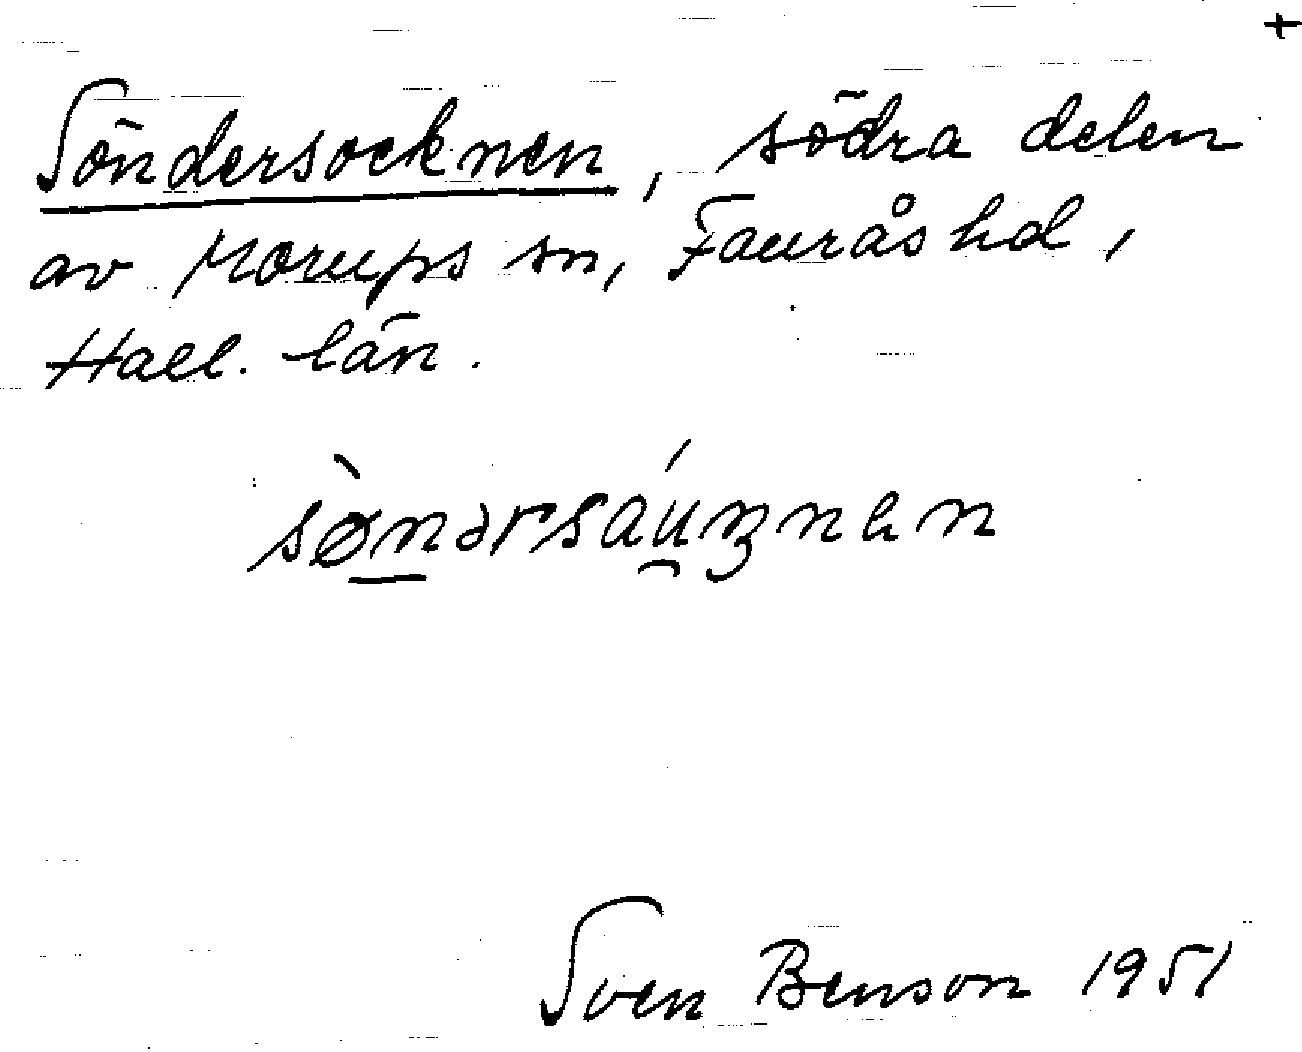 +
Söndersocknen, södra delen
av Morups sn, Faurås hd,
Hall. län.
sø̀nərsáu̯ŋnen
Sven Benson 1951